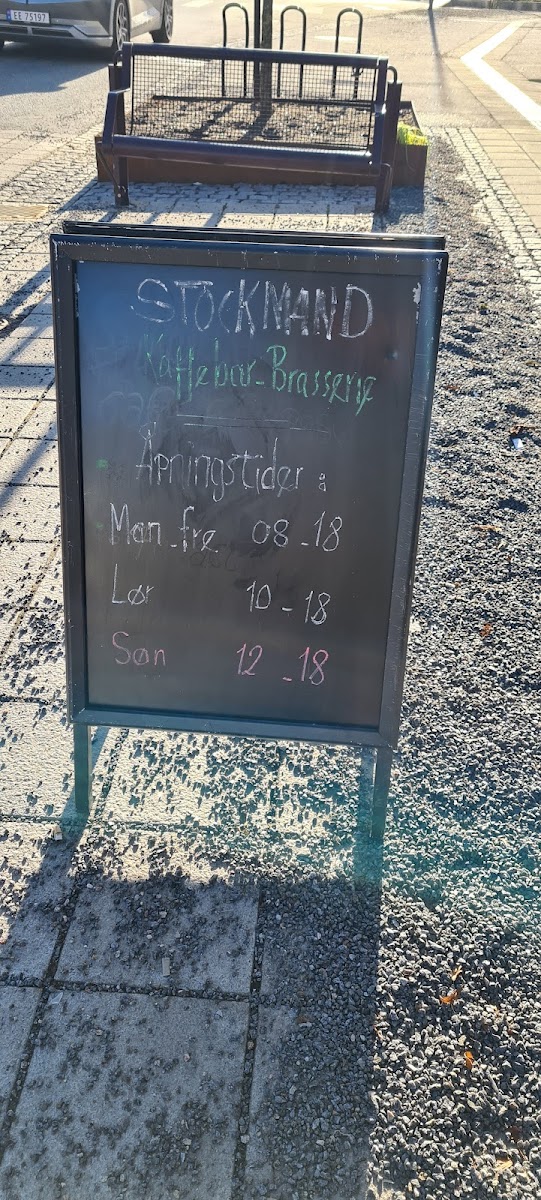 EE 75197
STOCKMAND
Kaffebar - Brasserie
Åpningstider :
Man - fre 08 - 18
Lør 10 - 18
Søn 12 - 18